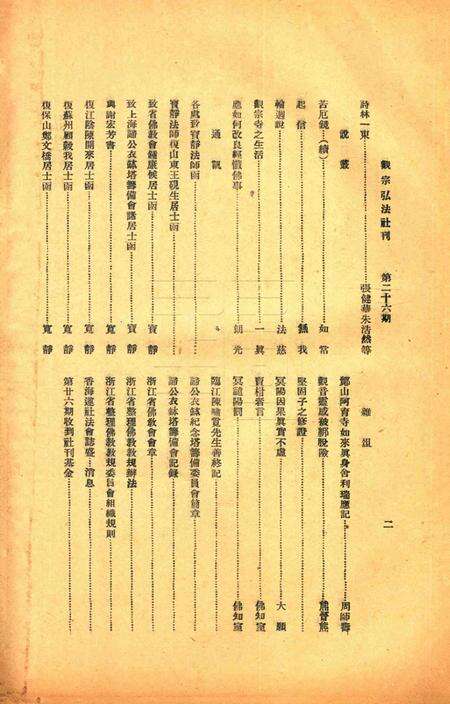 觀宗弘法社刊　第二十六期　二
詩林一束……張健華朱浩然等
說叢
苦厄鏡（續）……如常
起信……
輪迴說……法慈
觀宗寺之生活……一眞
應如何改良經懺佛事……朗光
通訊
各處致寶靜法師函……
寶靜法師復山東王硯生居士函……
致省佛教會鍾康候居士函……寶靜
致上海諦公衣鉢塔籌備會諸居士函……寶靜
與謝宏芳書……寬靜
復江陰陳開來居士函……寬靜
復蘇州顧毅我居士函……寬靜
復保山鄭文橋居士函……寬靜
雜俎
鄮山阿育寺如來眞身舍利瑞應記……周師濤
觀音靈感被綁脫險……
堅固子之修證……
冥陽因果眞實不虛……大願
賣柑者言……佛知室
冥譴陽罰……佛知室
臨江陳嘯覺先生善終記……
諦公衣鉢紀念塔籌備委員會簡章……
諦公衣鉢塔籌備會記錄……
浙江省佛敎會會章……
浙江省整理佛敎敎規辦法……
浙江省整理佛敎敎規委員會組織規則……
香海蓮社法會誌盛　消息……
第廿六期收到社刊基金……